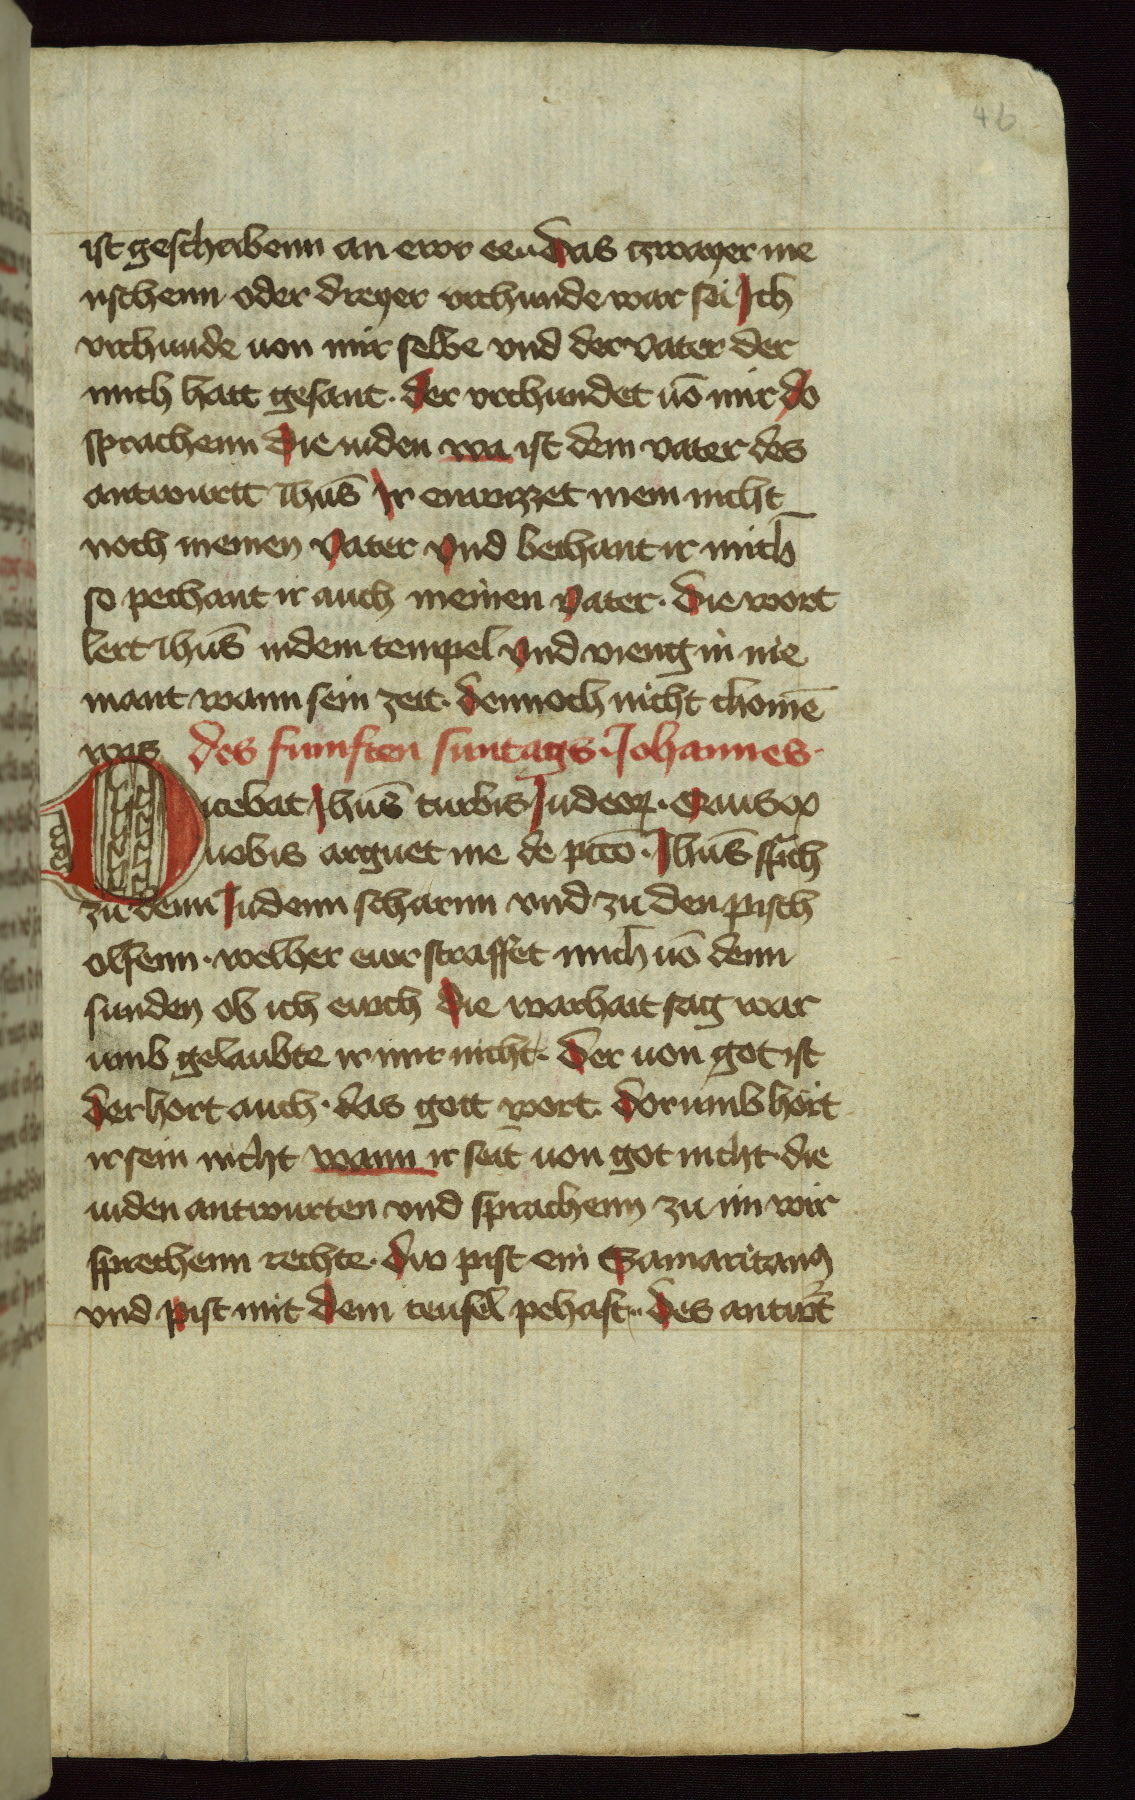 46
ist geschribenn an ewr ee das czwayer me
nschenn oder dreyer vrchunde war sei Ich
vrchunde uon mir selbe vnd der vater der
mich hatt gesant · der vrchundet uō mir do
sprachenn die iuden wa ist dem vater des
antwurtt ihūs Ir enwizzet mein nicht
noch meinen vater vnd bechant ir mich
so pechant ir auch meinen vater · die wort
lert ihūs indem tempel vnd vieng in nie
mant wann sein zeit · dennoch nicht chomē
was des fumften suntags · Johannes ·
Dicebat Ihūs turbis Iudeoꝝ · Quis ex
uobis arguet me de pccō · Ihūs sp̄ch
zu denn Iudenn scharnn vnd zu den pisch
olfenn · welher ewr straffet mich uō denn
sunden ob ich ewch die warhait sag war
umb gelaubte ir mir nicht · der uon got ist
der hort auch · das gott wort · dorumb hört
ir sein nicht wann ir seit uon got nicht · die
iuden antwurten vnd sprachenn zu im wir
sprechenn rechte · dw pist ein Samaritanꝰ
vnd pist mit dem teufel pehaft · des antwꝛt